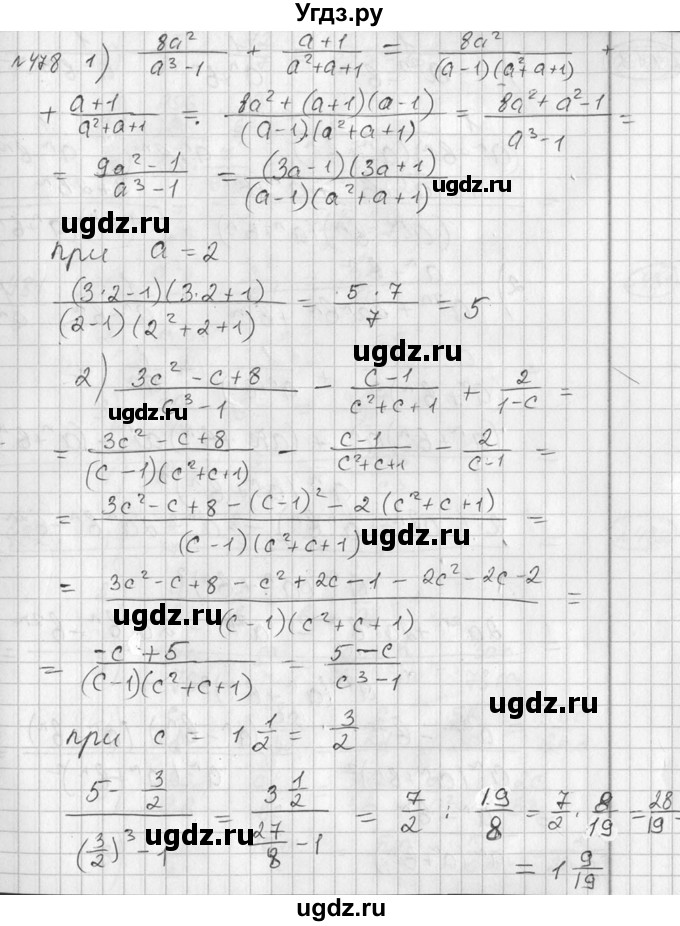 Угдз.ру
№478 1) 8a²/(a³-1) + (a+1)/(a²+a+1) = 8a²/((a-1)(a²+a+1)) +
+ (a+1)/(a²+a+1) = (8a²+(a+1)(a-1))/((a-1)(a²+a+1)) = (8a²+a²-1)/(a³-1) =
= (9a²-1)/(a³-1) = ((3a-1)(3a+1))/((a-1)(a²+a+1))
ugdz.ru
ugdz.ru
при a = 2
((3·2-1)(3·2+1))/((2-1)(2²+2+1)) = (5·7)/7 = 5
ugdz.ru
2) (3c²-c+8)/(c³-1) - (c-1)/(c²+c+1) + 2/(1-c) =
ugdz.ru
= (3c²-c+8)/((c-1)(c²+c+1)) - (c-1)/(c²+c+1) - 2/(c-1) =
= (3c²-c+8-(c-1)²-2(c²+c+1))/((c-1)(c²+c+1)) =
ugdz.ru
= (3c²-c+8-c²+2c-1-2c²-2c-2)/((c-1)(c²+c+1)) =
ugdz.ru
= (-c+5)/((c-1)(c²+c+1)) = (5-c)/(c³-1)
ugdz.ru
при c = 1 1/2 = 3/2
(5-3/2)/((3/2)³-1) = (3 1/2)/(27/8-1) = 7/2 : 19/8 = 7/2 · 8/19 = 28/19 =
ugdz.ru
= 1 9/19
ugdz.ru